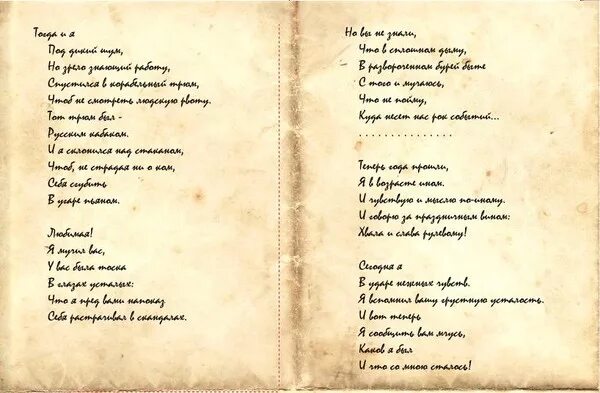 Тогда и я
Под дикий шум,
Но зрело знающий работу,
Спустился в корабельный трюм,
Чтоб не смотреть людскую рвоту.
Тот трюм был -
Русским кабаком.
И я склонился над стаканом,
Чтоб, не страдая ни о ком,
Себя сгубить
В угаре пьяном.
Любимая!
Я мучил вас,
У вас была тоска
В глазах усталых:
Что я пред вами напоказ
Себя растрачивал в скандалах.
Но вы не знали,
Что в сплошном дыму,
В развороченном бурей быте
С того и мучаюсь,
Что не пойму,
Куда несет нас рок событий...
. . . . . . . . . . . . . .
Теперь года прошли,
Я в возрасте ином.
И чувствую и мыслю по-иному.
И говорю за праздничным вином:
Хвала и слава рулевому!
Сегодня я
В ударе нежных чувств.
Я вспомнил вашу грустную усталость.
И вот теперь
Я сообщить вам мчусь,
Каков я был
И что со мною сталось!